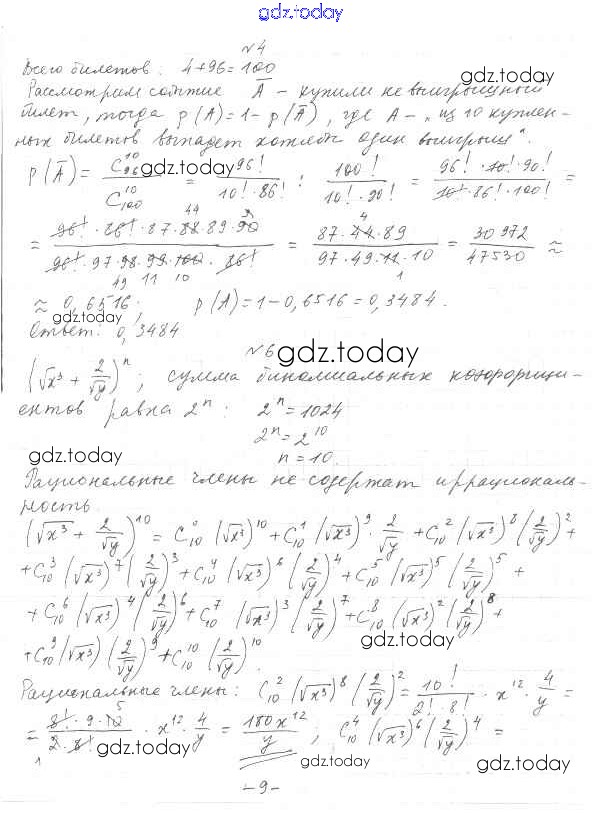 gdz.today
№4
Всего билетов: 4+96=100 gdz.today
Рассмотрим событие A̅ – купили не выигрышный
билет, тогда p(A)=1-p(A̅), где A – „из 10 куплен-
ных билетов выпадет хотябы один выигрыш".
p(A̅) = C₉₆¹⁰ / C₁₀₀¹⁰ = 96! / 10!·86! : 100! / 10!·90! = 96!·10!·90! / 10!·86!·100! =
gdz.today
= 96!·86!·87·88·89·90 / 96!·97·98·99·100·86! = 87·44·89 / 97·49·11·10 = 30972 / 47530 ≈
≈ 0,6516; p(A)=1-0,6516=0,3484.
gdz.today
Ответ: 0,3484
№6 gdz.today
(√x³ + 2/√y)ⁿ; сумма биномиальных коэффици-
ентов равна 2ⁿ: 2ⁿ=1024
2ⁿ=2¹⁰
gdz.today n=10.
Рациональные члены не содержат иррациональ-
ность.
(√x³ + 2/√y)¹⁰ = C₁₀⁰ (√x³)¹⁰ + C₁₀¹ (√x³)⁹ · 2/√y + C₁₀² (√x³)⁸ (2/√y)² +
+ C₁₀³ (√x³)⁷ (2/√y)³ + C₁₀⁴ (√x³)⁶ (2/√y)⁴ + C₁₀⁵ (√x³)⁵ (2/√y)⁵ +
+ C₁₀⁶ (√x³)⁴ (2/√y)⁶ + C₁₀⁷ (√x³)³ (2/√y)⁷ + C₁₀⁸ (√x³)² (2/√y)⁸ +
gdz.today
+ C₁₀⁹ (√x³) (2/√y)⁹ + C₁₀¹⁰ (2/√y)¹⁰.
Рациональные члены: C₁₀² (√x³)⁸ (2/√y)² = 10! / 2!·8! · x¹² · 4/y =
= 8!·9·10 / 2·8! · x¹² · 4/y = 180x¹² / y; C₁₀⁴ (√x³)⁶ (2/√y)⁴ =
gdz.today gdz.today gdz.today
-9-